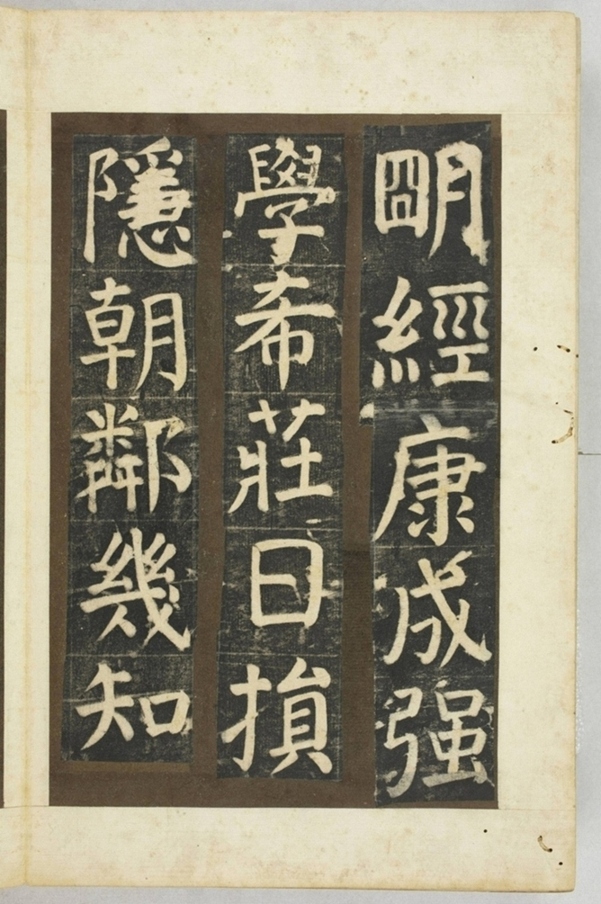 明經康成强
學希莊日損
隱朝鄰幾知